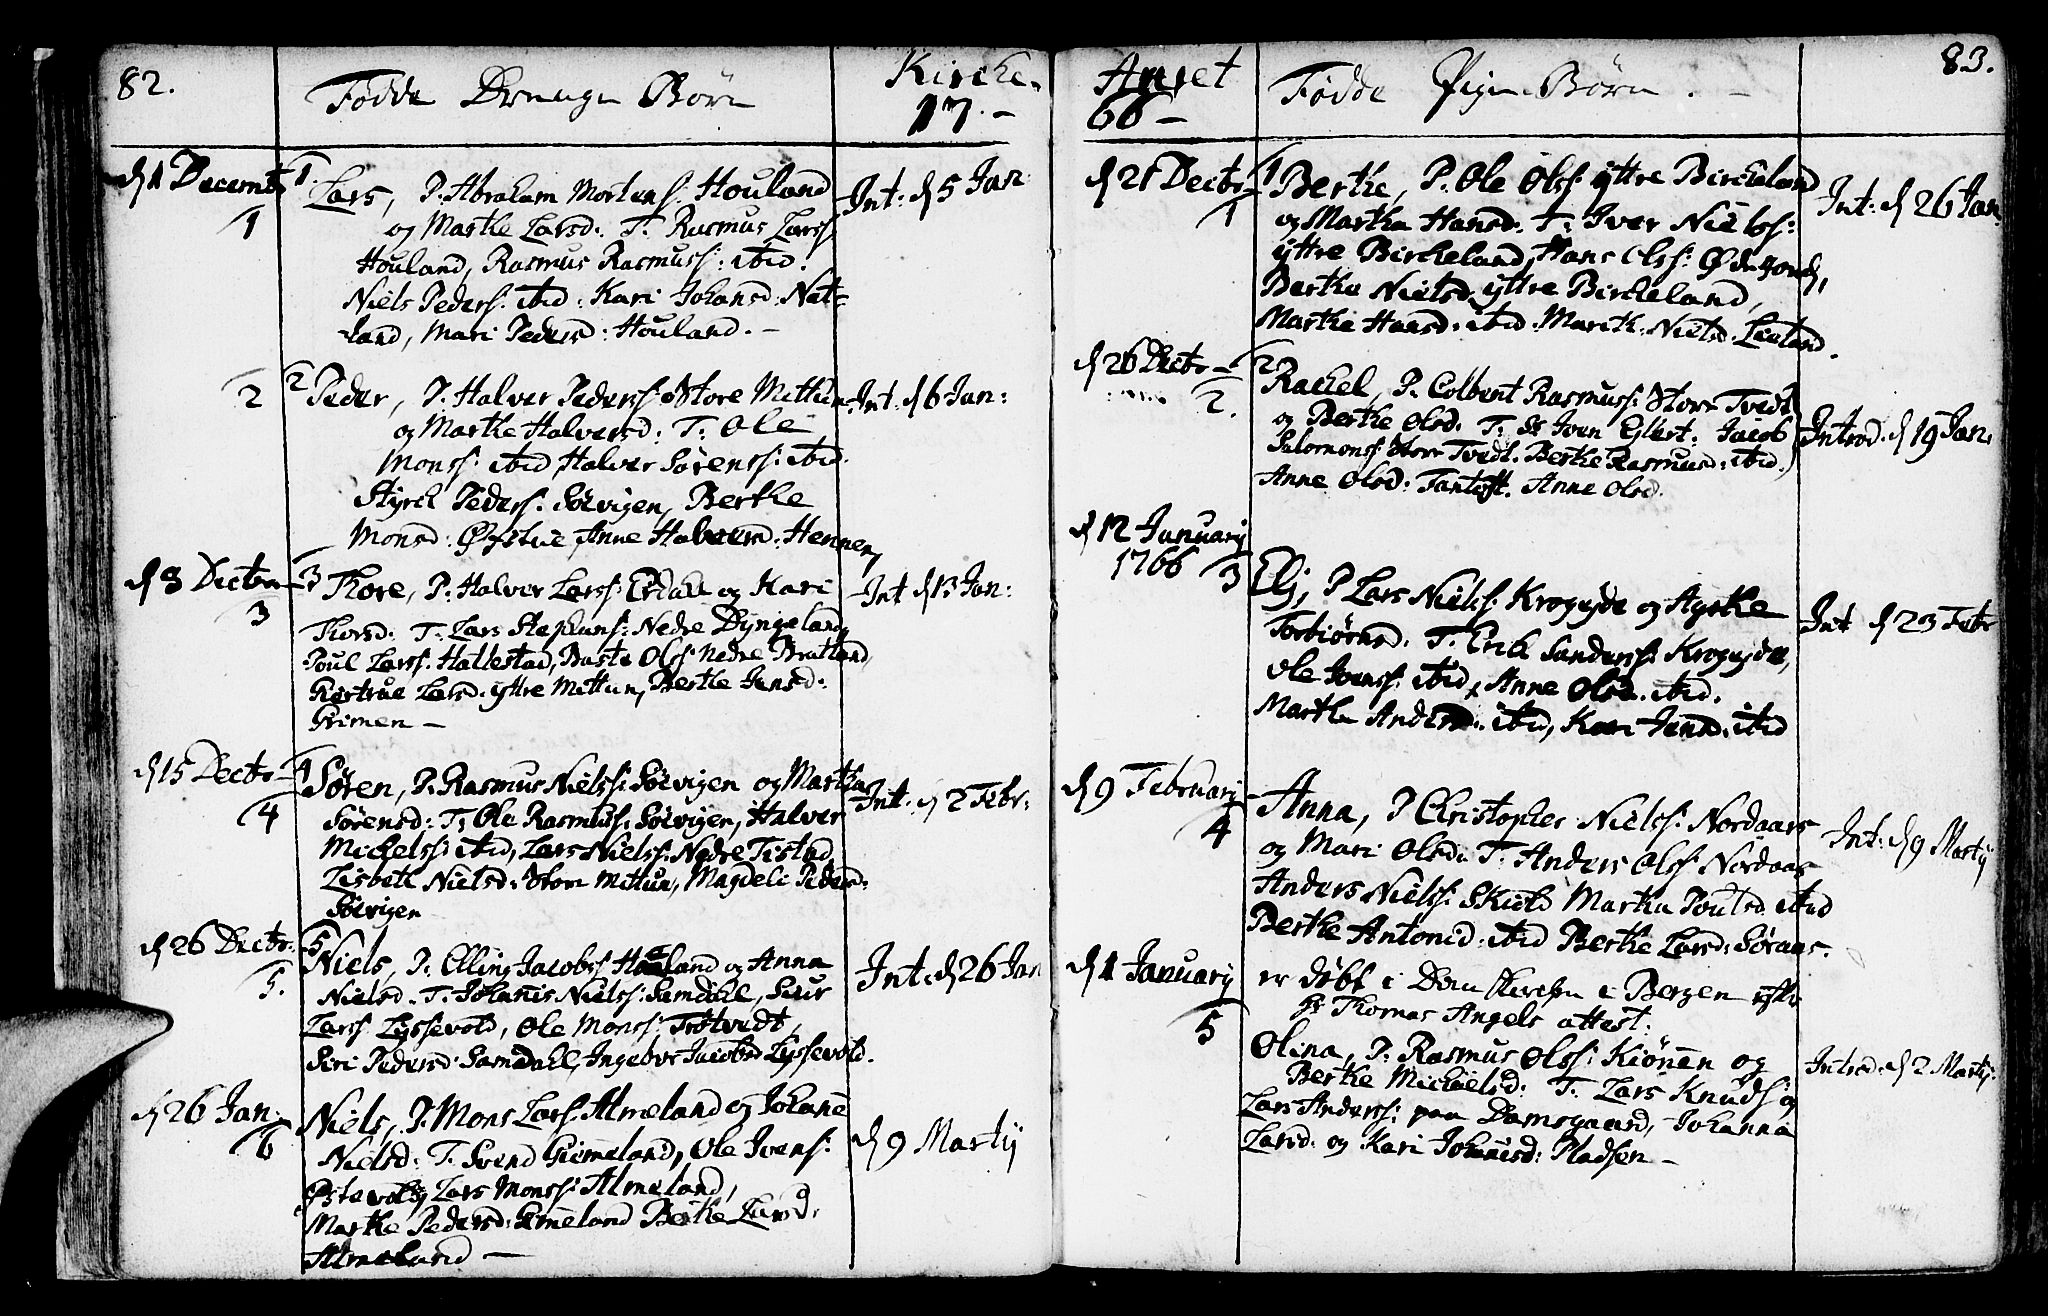 82.
Fødde Drenge Børn
Kirche-
17.-
d 1 Decembr 1.
1
Lars, P. Abraham Mortens: Houland
og Marthe Larsd: T. Rasmus Larss:
Houland, Rasmus Rasmuss: ibid.
Niels Peders: ibid: Kari Johansd: Nat=
land, Mari Pedersd: Houland. -
Int: d 5 Jan
2
2 Peder, P. Halver Pederss: Store Mittun
og Marthe Halversd: T: Ole
Monss: ibid, Halver Sørenss: ibid.
Styrck Peders: Søevigen, Berthe
Monsd: Øfstue, Anne Halversd: Hennen,
Int: d 6 Jan:
d 8 Decbr 3
3
Thore, P. Halver Larss: Erdall og Kari
Thorsd: T. Lars Stephens: Nedre Dyngeland
Poul Larss: Hallestad, Olss: Nedre Bratland,
Giertrue Larsd: yttre Mittun, Berthe Jensd:
Grimen -
Int d 13 Jan:
d 15 Decbr 4
4
Søren, P. Rasmus Nielss: Søevigen og Martha
Sørensd: T: Ole Rasmuss: Søevigen, Halver
Michelss: ibid, Lars Nielss: Nedre Tistad
Lisbeth Nielsd: Store Mittun, Magdeli Pedersd:
Søevigen
Int: d 2 Febr:
d 26 Decbr. 5
5.
Niels, P. Elling Jacobss Haaland og Anna
Nielsd. T. Johannis Nielss: Samdahl, Siur
Larss: Lyssevold, Ole Monss: Trøtvedt,
Siri Pedersd: Samdahl, Ingebor Jacobsd Lyssevold.
Int: d 26 Jan
d 26 Jan:
6
Niels, P. Mons Larss: Almeland og Johane
Nielsd: T. Svend Giemeland, Ole Ivens:
Østevold, Lars Monss: Almeland,
Marthe Pedersd: Gimeland Berthe Larsd:
Almeland -
d 9 Martij
83.
Aaret
66 -
Fødde Pige Børn. -
d 21 Decbr 1
1
Berthe, P. Ole Olss: yttre Bircheland
og Martha Hansd. T. Iver Nielss:
yttre Bircheland, Hans Olss: Ødegaard,
Bertha Nielsd yttre Bircheland,
Marthe Hansd: ibid. Marith: Nielsd: Lieland.
Int: d 26 Jan
d 26 Decbr - 2
2.
Rachel, P. Colbent Rasmuss: Store Tvedt
og Berthe Olsd. T. Sr Joen Eylert: Jacob
Salomonss: Store Tvedt. Berthe Rasmusd: ibid.
Anne Olsd: Tantoft. Anne Olsd.
Introd: d 19 Jan:
d 12 Januarij
1766 3
Elj, P Lars Nielss: Krogeyde og Agathe
Torbiørnsd. T. Erich Sanderss: Krogeyde,
Ole Joenss: ibid, Anne Olsd. ibid.
Martha Andersd: ibid, Kari Jensd. ibid
Int d 23 Febr
d 9 Februarij
4
Anna, P Christopher Nielss: Nordaas
og Mari Olsd. T. Anders Olss: Nordaas
Anders Nielss: Skiold Martha Poulsd. ibid
Berthe Antonid: ibid Berthe Larsd: Søraas.
Int: d 9 Martij
d 1 Januarij
5
er døbt i Dom Kirchen i Bergen efter
Hr Thomas Angels attest:
Olina, P. Rasmus Olss: Kiønen og
Berthe Michelsd: T. Lars Knuds: og
Lars Anderss: paa Damsgaard, Johanna
Larsd: og Kari Johannisd: Pladsen -
Introd: d 2 Martij: